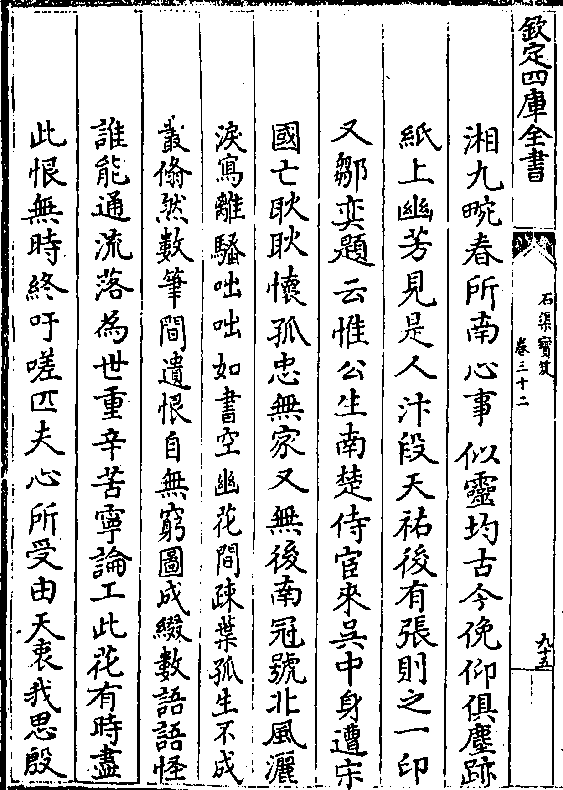 欽定四庫全書
石渠寳笈
卷三十二
九十五
湘九畹春所南心事似靈均古今俛仰俱塵跡
紙上幽芳見是人汴段天祐後有張則之一印
又鄒奕題云惟公生南楚侍宦來吳中身遭宋
國亡耿耿懐孤忠無家又無後南冠號北風灑
淚寫離騷咄咄如書空幽花間疎葉孤生不成
叢翛然數筆間遺恨自無窮圖成綴數語語怪
誰能通流落為世重辛苦寧論工此花有時盡
此恨無時終吁嗟匹夫心所受由天衷我思殷